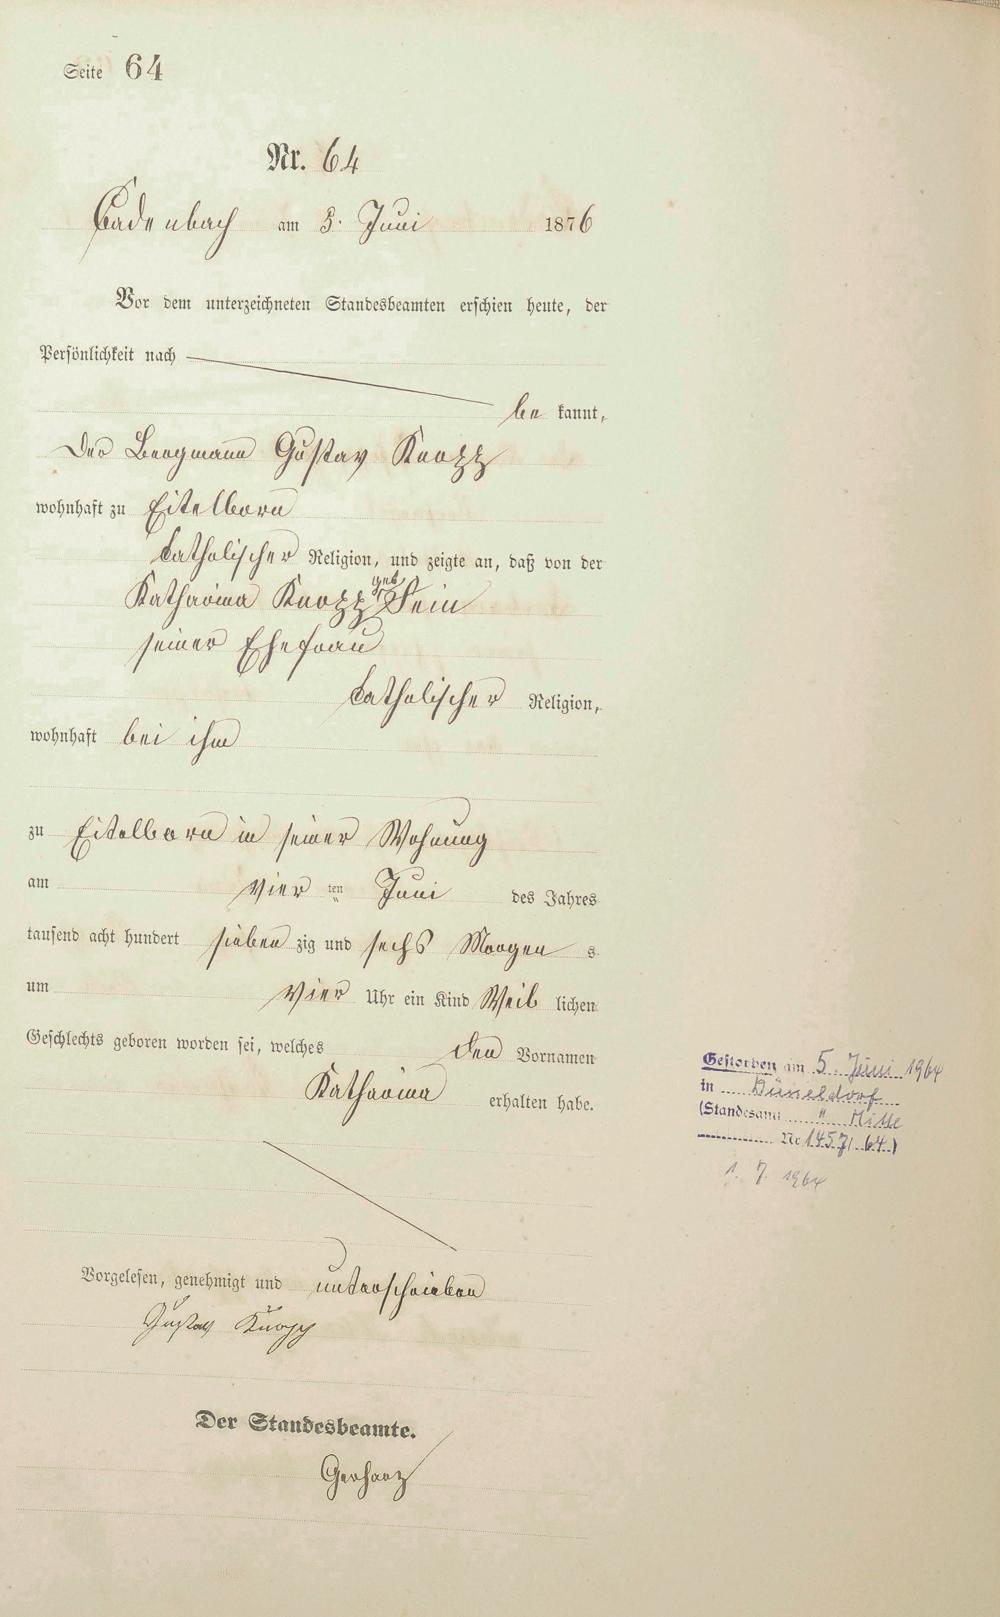 Seite 64
Nr. 64
Cadenbach am 5. Juni 1876
Vor dem unterzeichneten Standesbeamten erschien heute, der
Persönlichkeit nach
be kannt,
Der Bergmann Gustav Knopp
wohnhaft zu Eitelborn
katholischer Religion, und zeigte an, daß von der
geb
Katharina Knopp
seiner Ehefrau
katholischer Religion,
wohnhaft bei ihm
zu Eitelborn in seiner Wohnung
am vier ten Juni des Jahres
tausend acht hundert sieben zig und sechs Morgen s
um Vier Uhr ein Kind Weib lichen
Geschlechts geboren worden sei, welches den Vornamen
Katharina erhalten habe.
Vorgelesen, genehmigt und unterschrieben
Gustav Knopp
Der Standesbeamte.
Gerharz
Gestorben am 5. Juni 1964
in Düsseldorf
(Standesamt " Mitte
Nr 1457/64)
1. 7. 1964